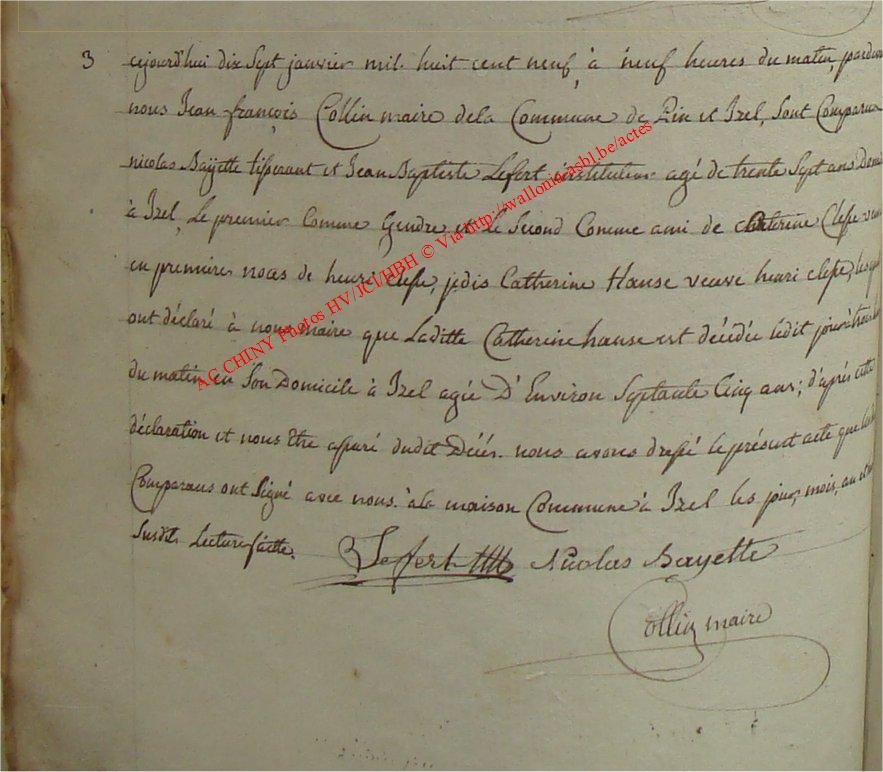 3 cejourd'hui dix Sept janvier mil huit cent neuf à neuf heures du matin, pardevant
nous Jean françois Collin maire dela Commune de Pin et Izel, Sont Comparus
nicolas Bayette tisserant et Jean Baptiste Lefort instituteur agé de trente Sept ans
à Izel, Le premier Comme Gendre et Le Second Comme ami de Catterine Clesse
en premiere noces de henri Clesse, jedis Catherine Hanse veuve henri clesse,
ont déclaré à nous maire que Laditte Catherine hanse est décédée ledit jour à
du matin en Son Domicile à Izel agée D'Environ Septante Cinq ans; d'après cette
déclaration et nous être aparé dudit Décés. nous avons dressé le présent acte que
Comparans ont Signé avec nous. à la maison Commune à Izel les jour, mois, an et
Susdits Lecture faitte.
Lefort Nicolas Bayette
Collin maire
AC CHINY Photos HV/JCI/HBH © Via http://wallonica.asbl.be/actes